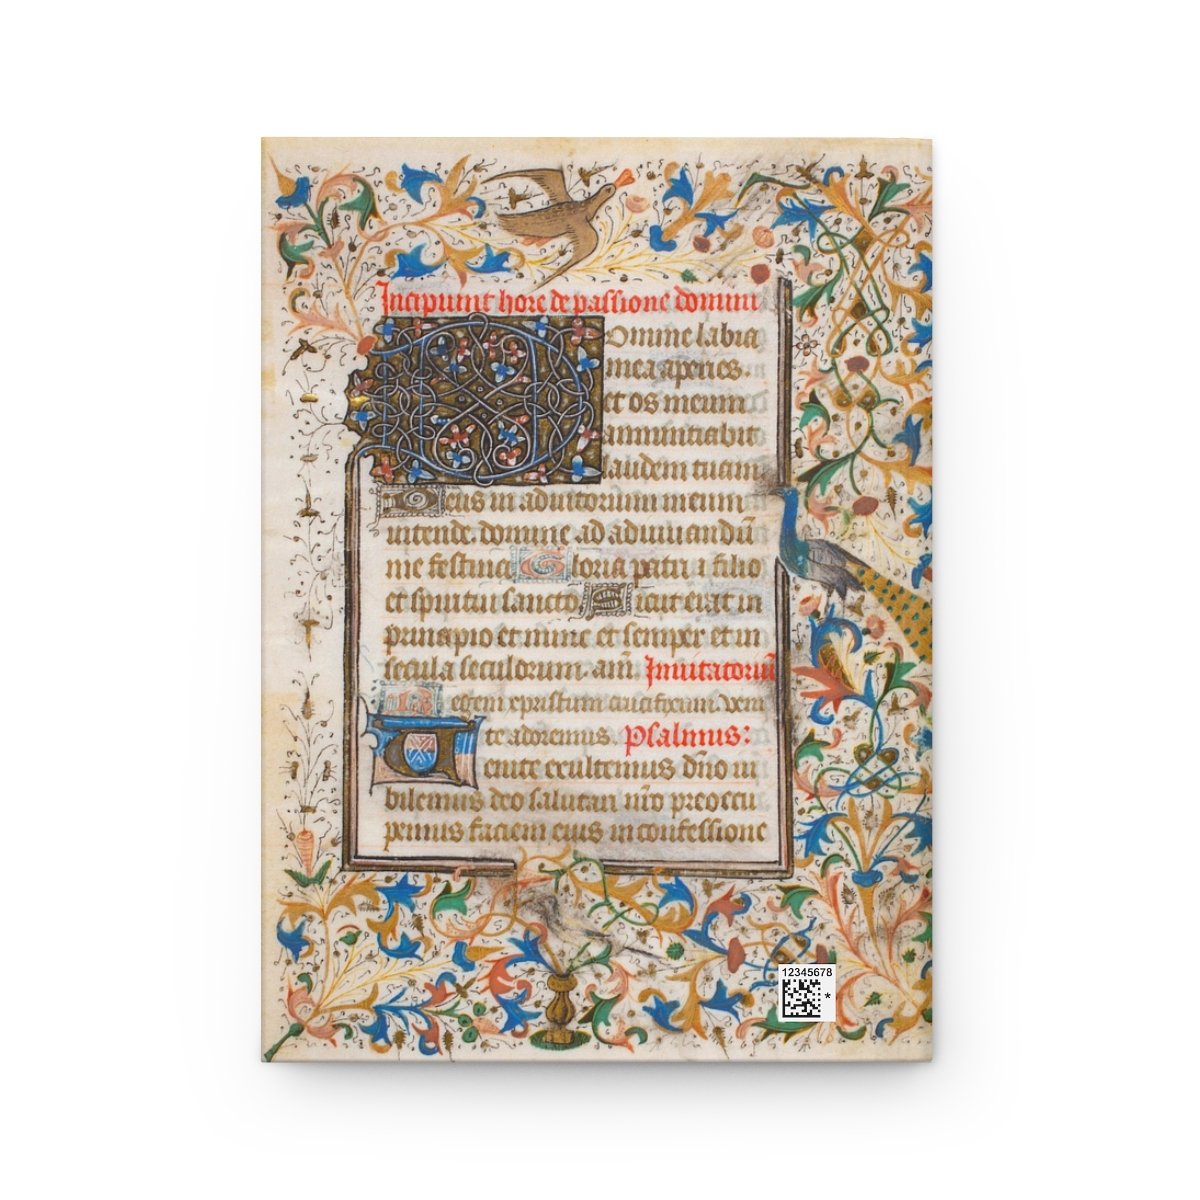 Incipiunt hore de passione domini
Domine labia
mea aperies.
et os meum
annuntiabit
laudem tuam
Deus in adiutorium meum
intende. domine ad adiuuandū
me festina Gloria patri i filio
et spiritui sancto Sicut erat in
principio et nunc et semper et in
secula seculorum. am̄ Inuitatoriū
Regem xpristum crucifixum. veni
te adoremus. Psalmus:
Uenite exultemus dn̄o iu
bilemus deo salutari nr̄o preoccu
pemus faciem eius in confessione
12345678
*